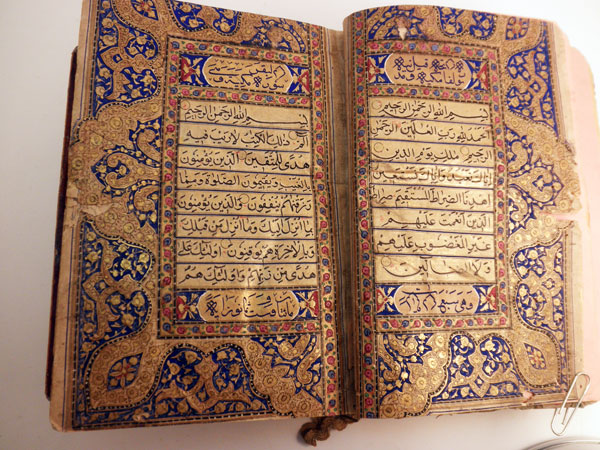 بسم الله الرحمن الرحيم
الحمد لله رب العلمين الرحمن
الرحيم ملك يوم الدين
اياك نعبد واياك نستعين
اهدنا الصراط المستقيم صراط
الذين انعمت عليهم
غير المغضوب عليهم
ولا الضالين
وهي سبع ايات
بسم الله الرحمن الرحيم
الم ذلك الكتب لا ريب فيه
هدى للمتقين الذين يؤمنون
بالغيب ويقيمون الصلوة ومما
رزقنهم ينفقون والذين يؤمنون
بما انزل اليك وما انزل من قبلك
وبالاخرة هم يوقنون اولئك على
هدى من ربهم واولئك هم